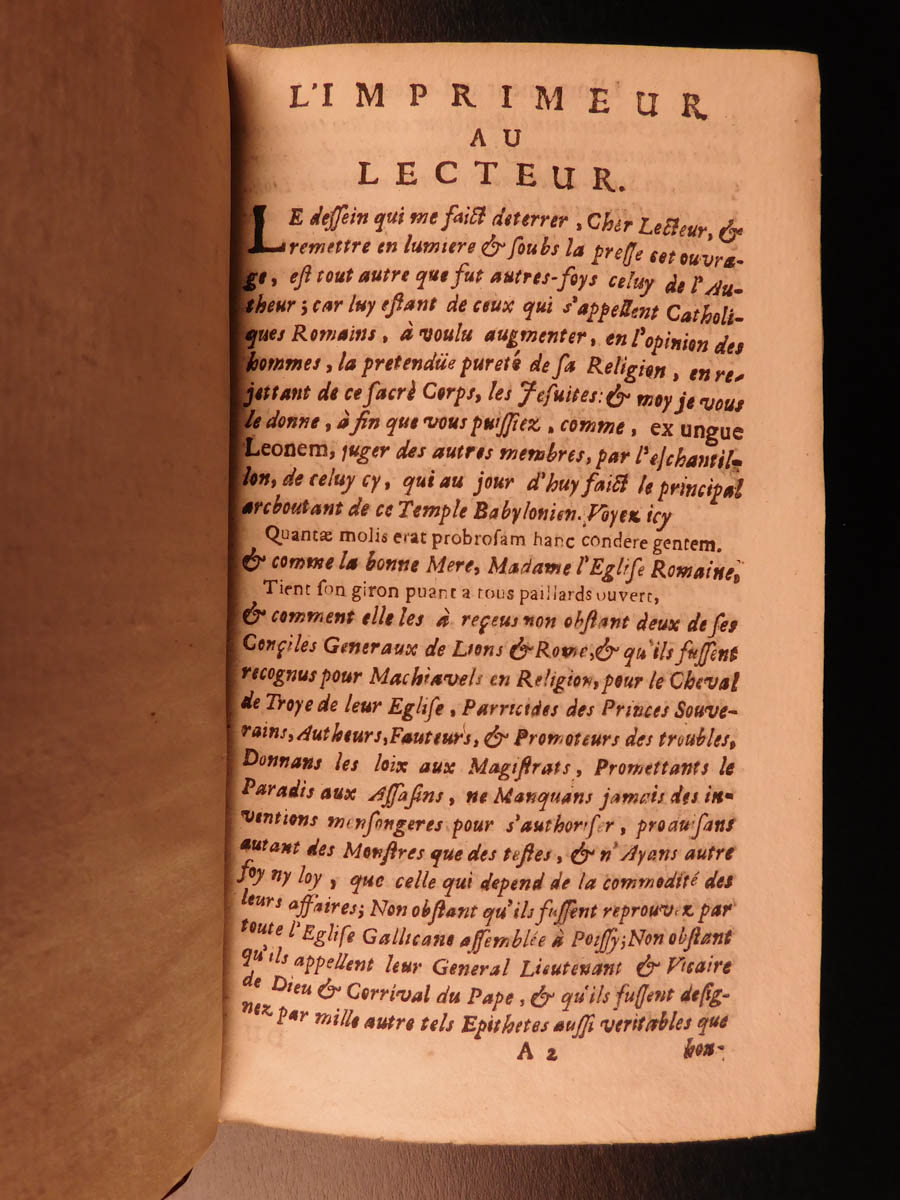 L'IMPRIMEUR
AU
LECTEUR.
LE dessein qui me faict deterrer, Cher Lecteur, &
remettre en lumiere & soubs la presse cet ouvra-
ge, est tout autre que fut autres-foys celuy de l'Au-
theur; car luy estant de ceux qui s'appellent Catholi-
ques Romains, à voulu augmenter, en l'opinion des
hommes, la pretendüe pureté de sa Religion, en re-
jettant de ce sacrè Corps, les Jesuites: & moy je vous
le donne, à fin que vous puissiez, comme, ex ungue
Leonem, juger des autres membres, par l'eschantil-
lon, de celuy cy, qui au jour d'huy faict le principal
arcboutant de ce Temple Babylonien. Voyez icy
Quantæ molis erat probrosam hanc condere gentem.
& comme la bonne Mere, Madame l'Eglise Romaine,
Tient son giron puant a tous paillards ouvert,
& comment elle les à reçeus non obstant deux de ses
Conçiles Generaux de Lions & Rome, & qu'ils fussent
recognus pour Machiavels en Religion, pour le Cheval
de Troye de leur Eglise, Parricides des Princes Souve-
rains, Autheurs, Fauteurs, & Promoteurs des troubles,
Donnans les loix aux Magistrats, Promettants le
Paradis aux Assasins, ne Manquans jamais des in-
ventions mensongeres pour s'authoriser, produisans
autant des Monstres que des testes, & n'Ayans autre
foy ny loy, que celle qui depend de la commodité des
leurs affaires; Non obstant qu'ils fussent reprouvez par
toute l'Eglise Gallicane assemblée à Poissy; Non obstant
qu'ils appellent leur General Lieutenant & Vicaire
de Dieu & Corrival du Pape, & qu'ils fussent desig-
nez par mille autre tels Epithetes aussi veritables que
A 2 hon-